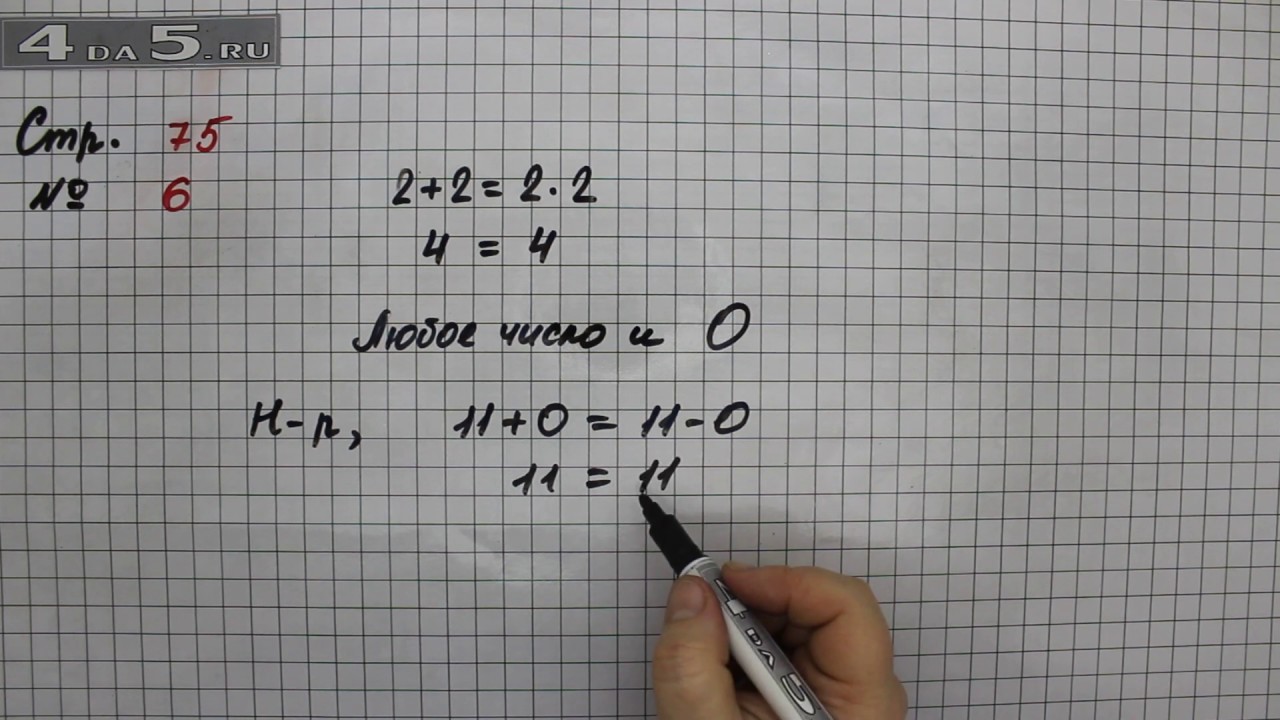 4 DA 5.RU
Стр. 75
№ 6
2+2=2·2
4 = 4
Любое число и 0
Н-р, 11+0 = 11-0
11 = 11
4 DA 5